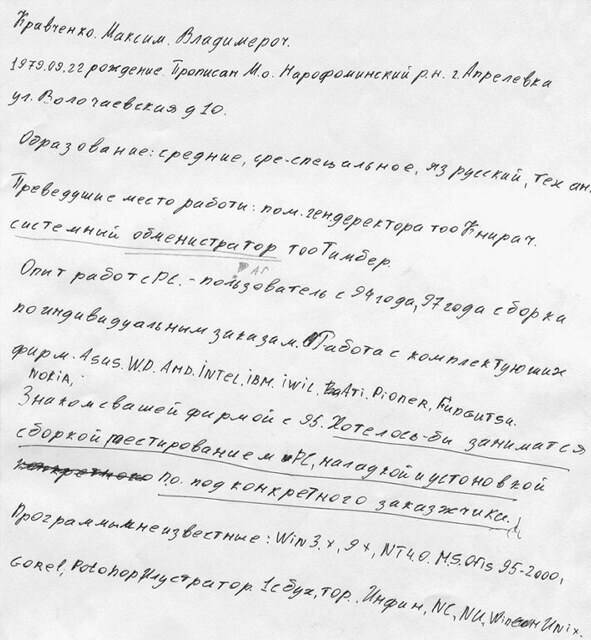 Кравченко. Максим. Владимероч.
1979.09.22 рождение. Прописан М.о. Нарофоминский р.н. г. Апрелевка
ул. Волочаевская д 10.
Образование: средние, сре-специальное, яз русский, тех ан.
Преведущие место работи: пом. гендеректора тоо Книрач.
системний обменистратор тоо Тимбер.
Опит работ с PC. - ползователь с 94 года, 97 года сборка
по индивидуальним заказам. Работа с комплектующих
фирм. Asus. W.D. AMD. iNTEL. iBM. iWiL. Ati. Pioner. Fungutsu.
NOKiA,
Знаком с вашей фирмой с 95. Хотелось-би заниматся
сборкой тестированием PC, наладкой и устоновкой
по. под конкретного заказжчика.
Программы мне известные: Win 3.x, 9x, NT4.0. M.S. Ofis 95-2000,
Gorel, Potohop Илустратор. 1с бух, тор. Инфин, NC, NU, Wincon Unix.